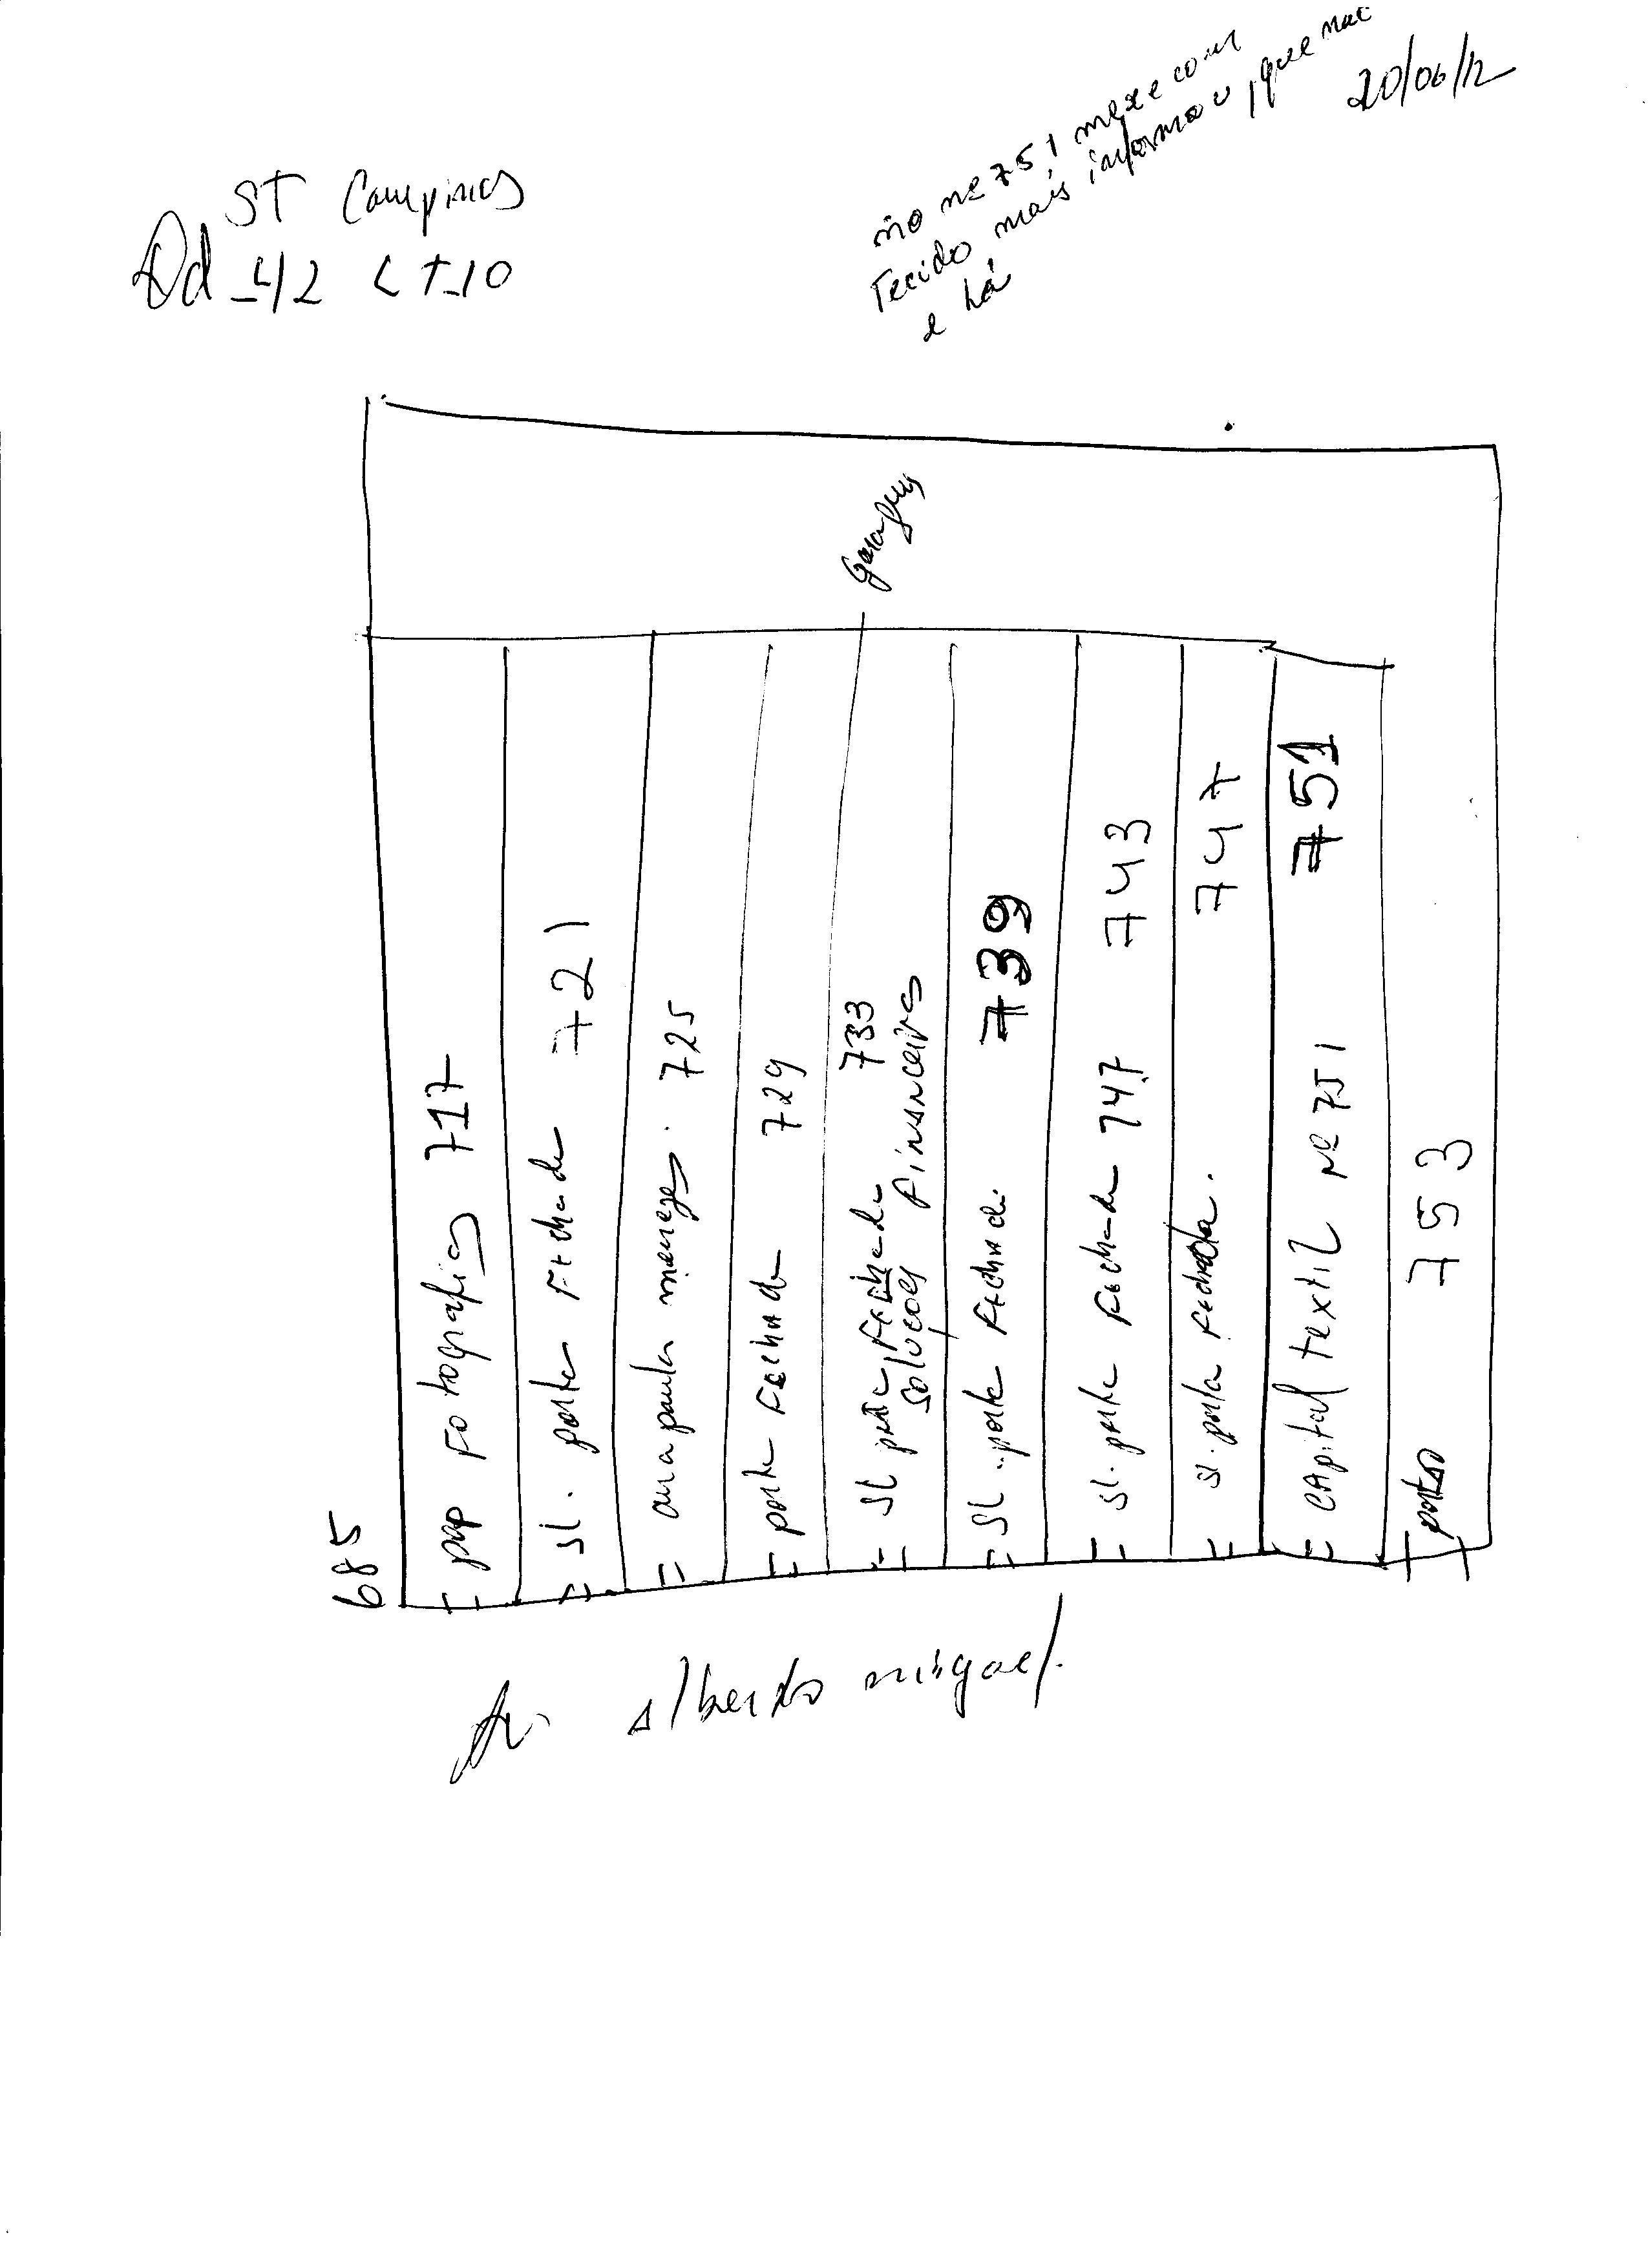 20/06/12
ST Campinas
Qd_42 LT_10
no nº 751 mexe com
Tecido mais informou que nac
e há
Garagens
pap Fotografias 717
sl. porta Fechada 721
ana paula menezes. 725
porta Fechada 729
sl porta Fechada 733
soluções financeiras
sl. porta Fechada 739
sl. porta Fechada 747 743
sl. porta Fechada. 747
capital textil nº 751 751
portão 753
685
Av. alberto miguel.